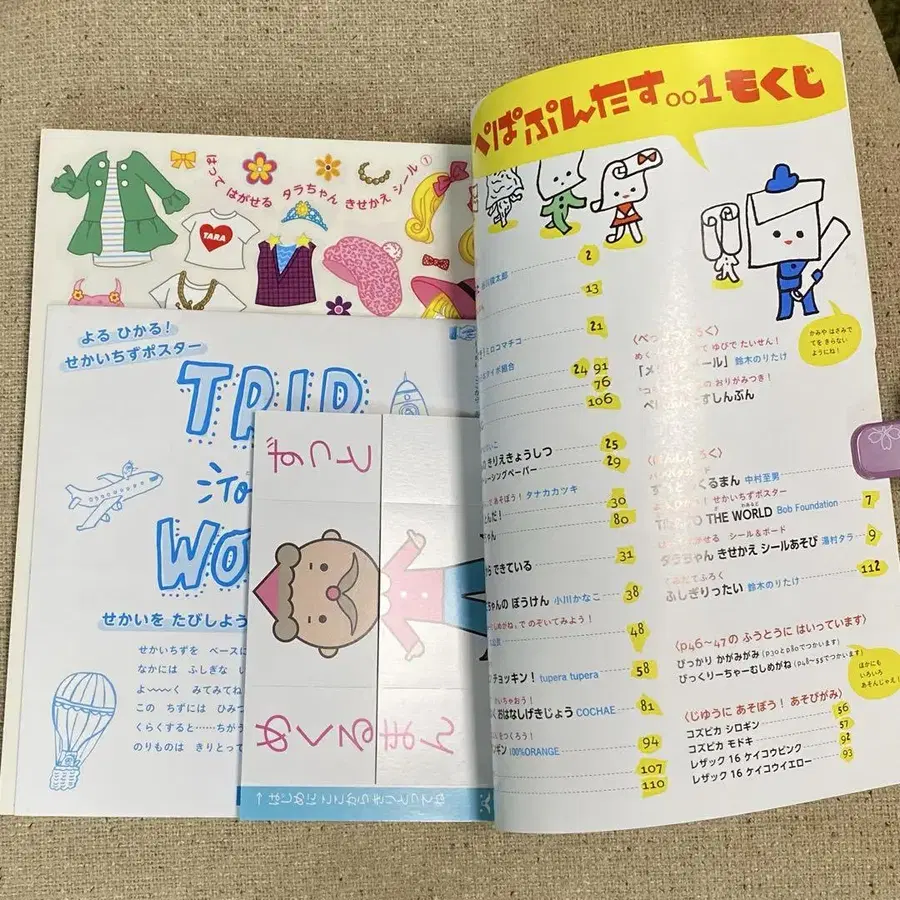 はって はがせる タラちゃん きせかえ シール①
TARA
よる ひかる!
せかいちずポスター
TRIP
せかいを たびしよう
せかいちずを ベースに
なかには ふしぎな
よ〜〜〜く みてみてね
この ちずには ひみつ
くらくすると……ちがう
のりものは きりとって
てつず
めくるまん
→はじめに ここから きりとってね
ぺぱぷんたす001もくじ
2
13
21
ミロコマチコ
24 91
76
106
きりえきょうしつ 25
トレーシングペーパー 29
で あそぼう! タナカカツキ
30
80
できている 31
ちゃんの ぼうけん 小川かなこ 38
で のぞいてみよう!
48
チョッキン! tupera tupera 58
おはなしげきじょう COCHAE 81
つくろう!
100%ORANGE 94
107
110
かみや はさみで
てを きらない
ようにね!
ゆびで たいせん!
鈴木のりたけ
おりがみつき!
しんぶん
くるまん 中村至男
せかいちずポスター
THE WORLD Bob Foundation 7
シール&ボード
タラちゃん きせかえ シールあそび 湯村タラ 9
ふしぎりったい 鈴木のりたけ 112
〈p46〜47の ふうとうに はいっています〉
ぴっかり かがみがみ(p30とp80でつかいます)
びっくりーちゃーむしめがね(p48〜55でつかいます)
ほかにも
いろいろ
あそんじゃえ!
〈じゆうに あそぼう! あそびがみ〉
コズピカ シロギン 56
コズピカ モドキ 57
レザック16 ケイコウピンク 92
レザック16 ケイコウイエロー 93